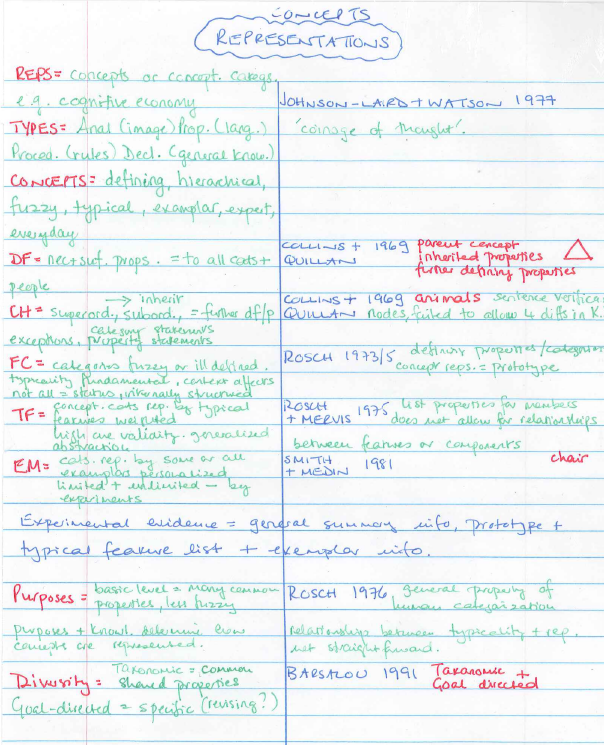 CONCEPTS
REPRESENTATIONS
REPS = concepts or concept. categs.
e.g. cognitive economy
JOHNSON-LAIRD + WATSON 1977
TYPES = Anal (image) Prop. (lang.)
'coinage of thought'.
Proced. (rules) Decl. (general know.)
CONCEPTS = defining, hierarchical,
fuzzy, typical, examplar, expert,
everyday
DF = nec + suf. props. = to all cats +
people
COLLINS + 1969 parent concept
QUILLAN inherited properties
further defining properties
→ inherit
CH = Superord., subord., = further df/p
exceptions, category statements
property statements
COLLINS + 1969 animals sentence verificat
QUILLAN nodes, failed to allow 4 diffs in K.
FC = categories fuzzy or ill defined.
typicality fundamental, context affects
not all = status, internally structured
ROSCH 1973/5 defining properties/categories
concept reps. = prototype
TF = concept. cats rep. by typical
features weighted
high cue validity. generalised
abstraction
ROSCH 1975 list properties for members
+ MERVIS does not allow for relationships
between features or components
EM = cats. rep. by some or all
examplars personalized
limited + unlimited — by
experiments
SMITH 1981 chair
+ MEDIN
Experimental evidence = general summary info, prototype +
typical feature list + exemplar info.
Purposes = basic level = many common
properties, less fuzzy
ROSCH 1976 general property of
human categorization
purposes + knowl. determine how
concepts are represented.
relationships between typicality + rep.
not straightforward.
Diversity = Taxonomic = common
shared properties
BARSALOU 1991 Taxonomic +
Goal directed
Goal-directed = specific (revising?)